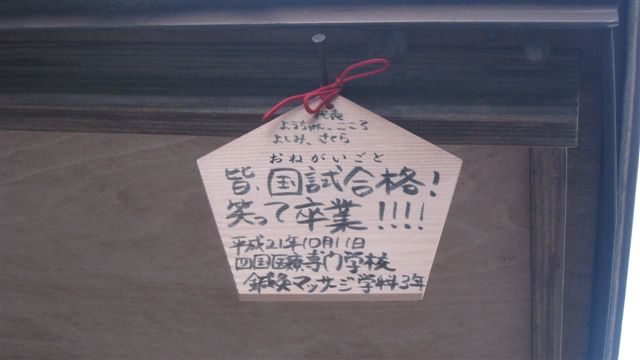 代表
よるちゃん、こころ
よしみ、さくら
おねがいごと
皆、国試合格!
笑って卒業!!!!
平成21年10月11日
四国医療専門学校
鍼灸マッサージ学科3年